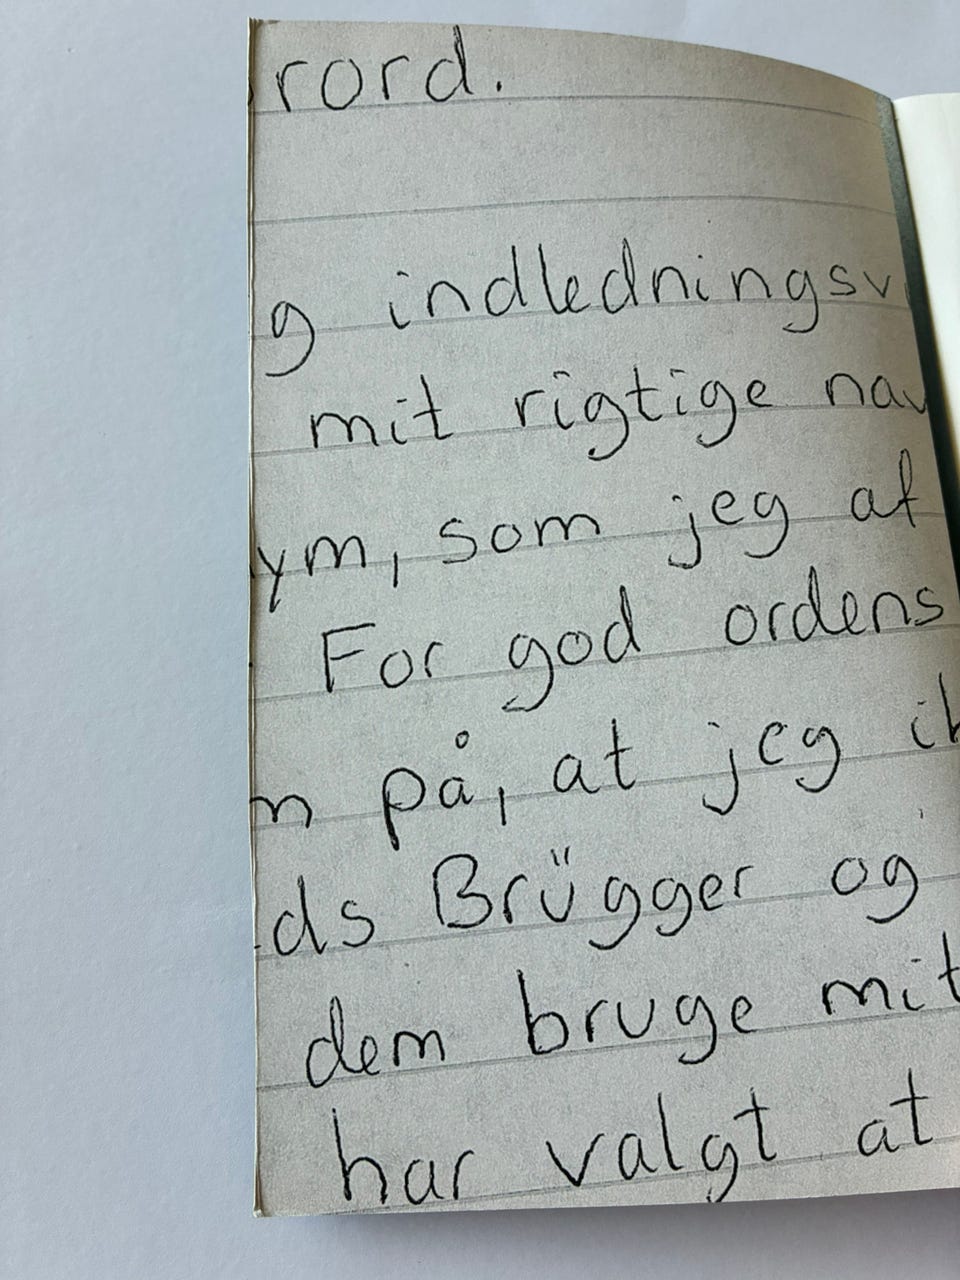 rord.
g indledningsv
mit rigtige nav
ym, som jeg af
For god ordens
n på, at jeg ik
ds Brügger og
dem bruge mit
har valgt at